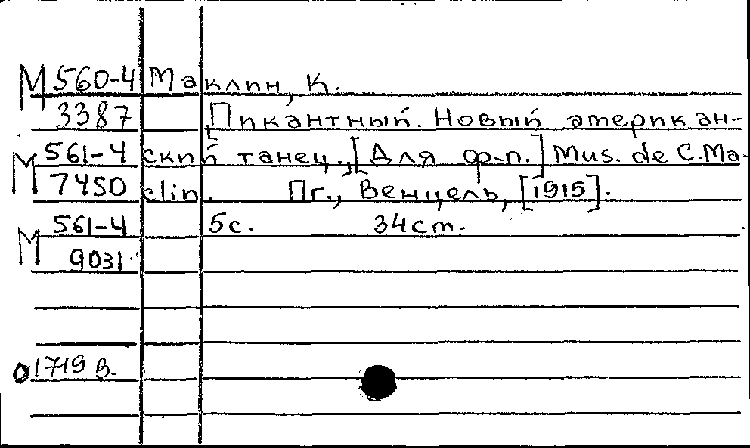 М 560-4 Маклин, К.
3387 Пикантный. Новый американ-
М 561-4 ский танец., [Для ф-п.] Mus. de C. Ma-
7450 clin. Пг., Венцель, [1915].
М 561-4 5с. 34cm.
9031
01719 В.